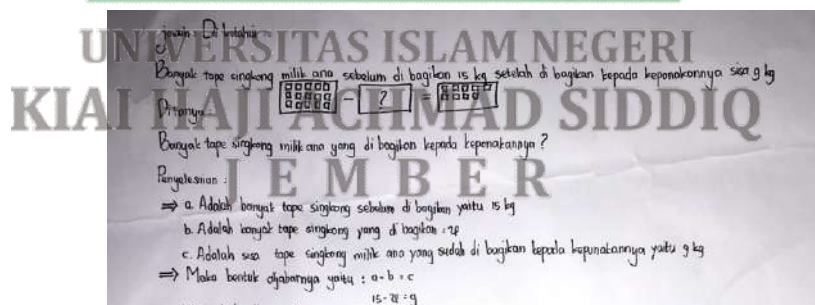 jawab : Di ketahui
UNIVERSITAS ISLAM NEGERI
Banyak tape singkong milik ana sebelum di bagikan 15 kg setelah di bagikan kepada keponakannya sisa 9 kg
- ? =
Ditanya :
KIAI HAJI ACHMAD SIDDIQ
Banyak tape singkong milik ana yang di bagikan kepada keponakannya ?
Penyelesaian :
JEMBER
⇒ a. Adalah banyak tape singkong sebelum di bagikan yaitu 15 kg
b. Adalah banyak tape singkong yang di bagikan :
c. Adalah sisa tape singkong milik ana yang sudah di bagikan kepada kepunakannya yaitu 9 kg
⇒ Maka bentuk aljabarnya yaitu : a - b = c
15 - = 9